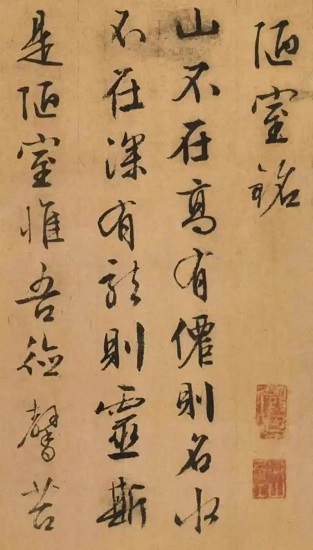 陋室銘
山不在高有僊則名水
不在深有龍則靈斯
是陋室惟吾德馨苔